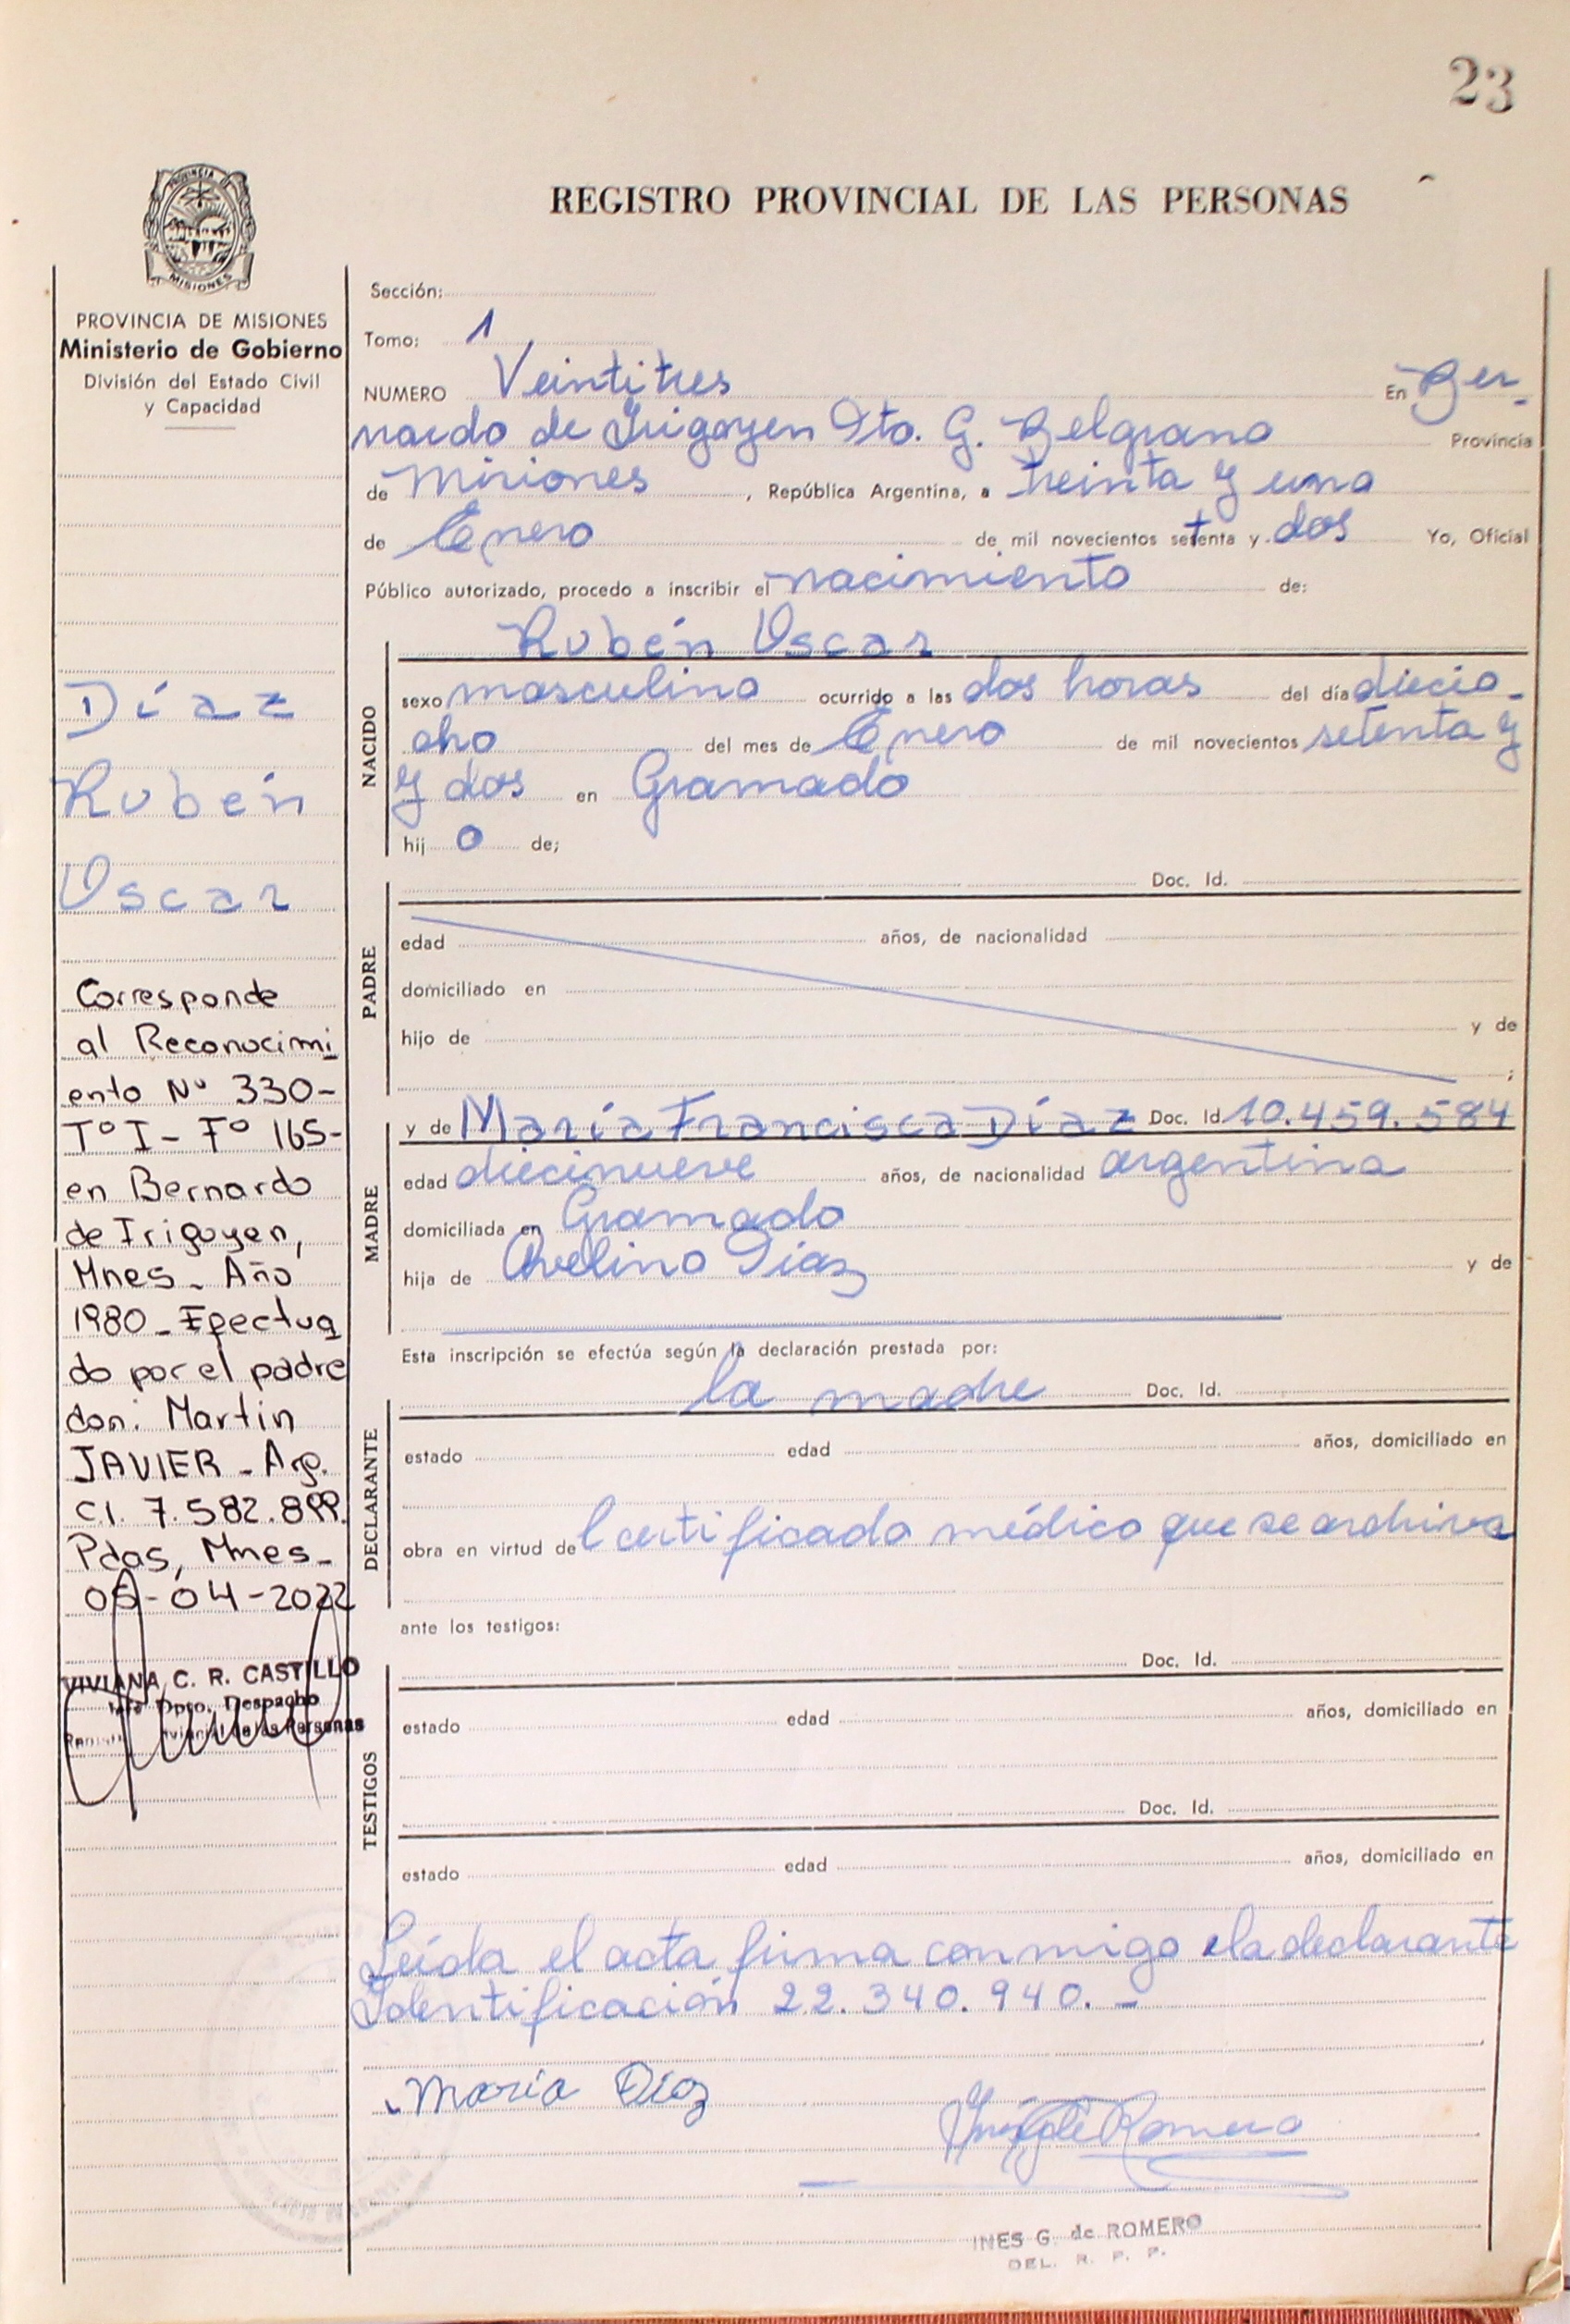 23
REGISTRO PROVINCIAL DE LAS PERSONAS
PROVINCIA
MISIONES
PROVINCIA DE MISIONES
Ministerio de Gobierno
División del Estado Civil
y Capacidad
Díaz
Rubén
Oscar
Corresponde
al Reconocimi
ento Nº 330-
Tº I - Fº 165-
en Bernardo
de Irigoyen,
Mnes - Año
1980 - Efectua
do por el padre
don: Martin
JAVIER - Arg.
C.I. 7.582.899.
Pdas, Mnes -
05-04-2022
VIVIANA C. R. CASTILLO
Jefe Dpto. Despacho
de las Personas
Sección:
Tomo: 1
NUMERO Veintitres En Ber-
nardo de Irigoyen Dto. G. Belgrano Provincia
de Misiones , República Argentina, a treinta y uno
de Enero de mil novecientos setenta y dos Yo, Oficial
Público autorizado, procedo a inscribir el nacimiento de:
NACIDO
Rubén Oscar
sexo masculino ocurrido a las dos horas del día diecio-
cho del mes de Enero de mil novecientos setenta y
y dos en Gramado
hij o de;
PADRE
Doc. Id.
edad años, de nacionalidad
domiciliado en
hijo de y de
;
MADRE
y de María Francisca Díaz Doc. Id. 10.459.584
edad diecinueve años, de nacionalidad argentina
domiciliada en Gramado
hija de Avelino Díaz y de
Esta inscripción se efectúa según la declaración prestada por:
DECLARANTE
la madre Doc. Id.
estado edad años, domiciliado en
obra en virtud de l certificado médico que se archiva
ante los testigos:
TESTIGOS
Doc. Id.
estado edad años, domiciliado en
Doc. Id.
estado edad años, domiciliado en
Leída el acta firma conmigo la declarante
Identificación 22.340.940. -
Maria Díaz
Romero
INES G. de ROMERO
DEL. R. P. P.